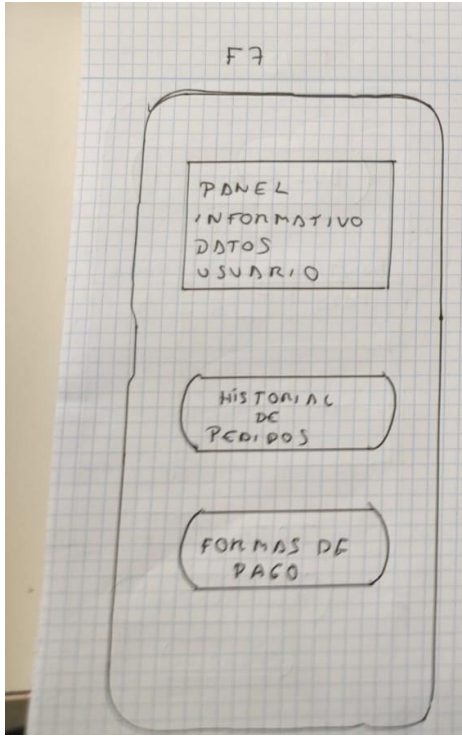 F7
PANEL
INFORMATIVO
DATOS
USUARIO
HISTORIAL
DE
PEDIDOS
FORMAS DE
PAGO